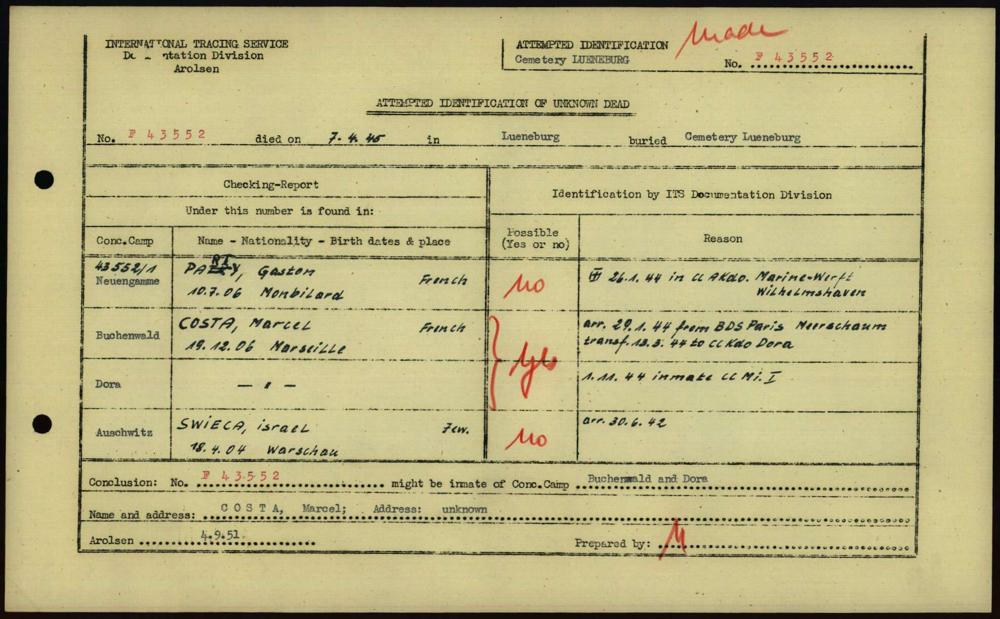 INTERNATIONAL TRACING SERVICE
ntation Division
Arolsen
ATTEMPTED IDENTIFICATION
Cemetery LUENEBURG
Made
No. F 43552
ATTEMPTED IDENTIFICATION OF UNKNOWN DEAD
No. F 43552 died on 7.4.45 in Lueneburg buried Cemetery Lueneburg
Checking-Report
Under this number is found in:
Identification by ITS Documentation Division
Conc.Camp
Name - Nationality - Birth dates & place
Possible
(Yes or no)
Reason
43552/1
Neuengamme
Gaston French
10.7.06 Monbilard
no
26.1.44 in CC AKdo. Marine-Werft
Wilhelmshaven
Buchenwald
COSTA, Marcel French
19.12.06 Marseille
yes
arr. 29.1.44 from BDS Paris Meerschaum
transf. 13.3.44 to CC Kdo Dora
Dora
— " —
1.11.44 inmate CC Mi. I
Auschwitz
SWIECA, israel Jew.
18.4.04 Warschau
no
arr. 30.6.42
Conclusion: No. F 43552 might be inmate of Conc.Camp Buchenwald and Dora
Name and address: COSTA, Marcel; Address: unknown
Arolsen 4.9.51
Prepared by: